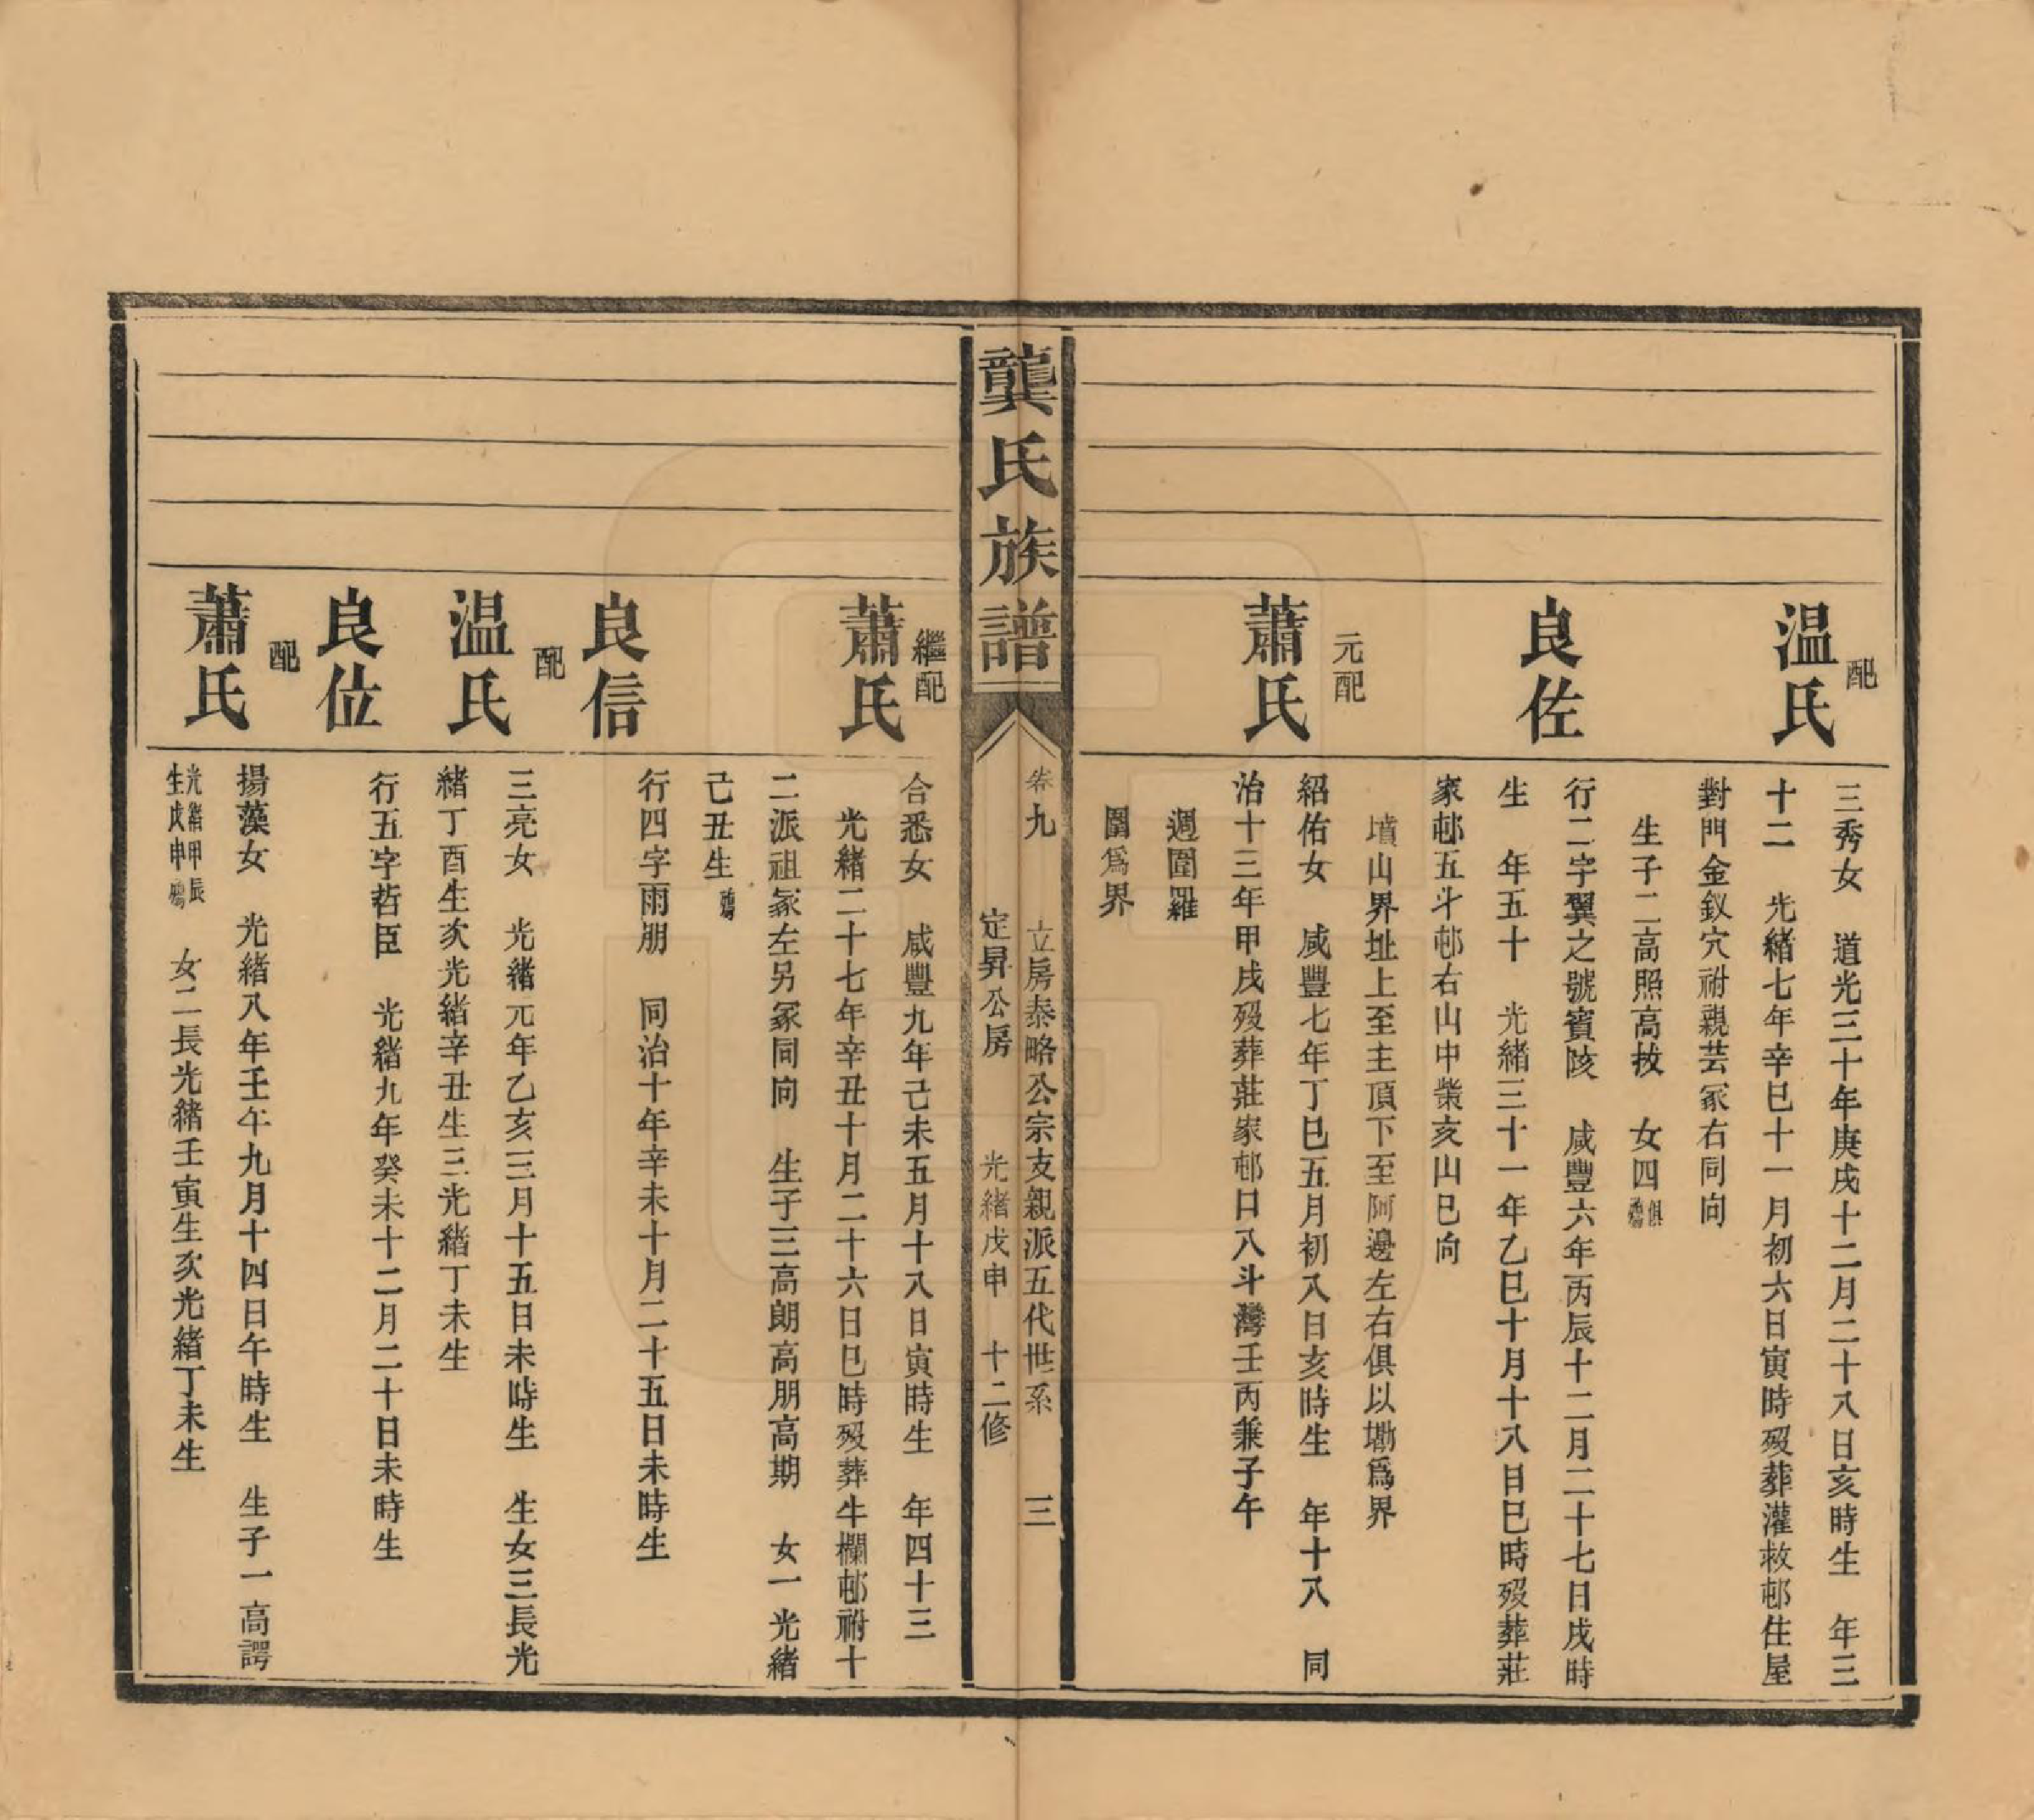 配
温氏
三秀女　道光三十年庚戌十二月二十八日亥時生　年三
十二　光緒七年辛巳十一月初六日寅時歿葬灌救邨住屋
對門金釵穴祔親芸冢右同向
生子二高照高技　女四俱殤
良佐
行二字翼之號賓陔　咸豐六年丙辰十二月二十七日戌時
生　年五十　光緒三十一年乙巳十月十八日巳時歿葬莊
家邨五斗邨右山中業亥山巳向
墳山界址上至主頂下至阿邊左右俱以墈爲界
元配
蕭氏
紹佑女　咸豐七年丁巳五月初八日亥時生　年十八　同
治十三年甲戌歿葬莊家邨日八斗灣壬丙兼子午
週圍羅
圍爲界
龔氏族譜
卷九　立房泰略公宗支親派五代世系　三
定昇公房　光緒戊申　十二修
繼配
蕭氏
合悉女　咸豐九年己未五月十八日寅時生　年四十三
光緒二十七年辛丑十月二十六日巳時歿葬牛欄邨祔十
二派祖冢左另冢同向　生子三高朗高朋高期　女一光緒
己丑生殤
良信
行四字雨朋　同治十年辛未十月二十五日未時生
配
温氏
三亮女　光緒元年乙亥三月十五日未時生　生女三長光
緒丁酉生次光緒辛丑生三光緒丁未生
良位
行五字哲臣　光緒九年癸未十二月二十日未時生
配
蕭氏
揚藻女　光緒八年壬午九月十四日午時生　生子一高諤
光緒甲辰生戊申殤　女二長光緒壬寅生次光緒丁未生